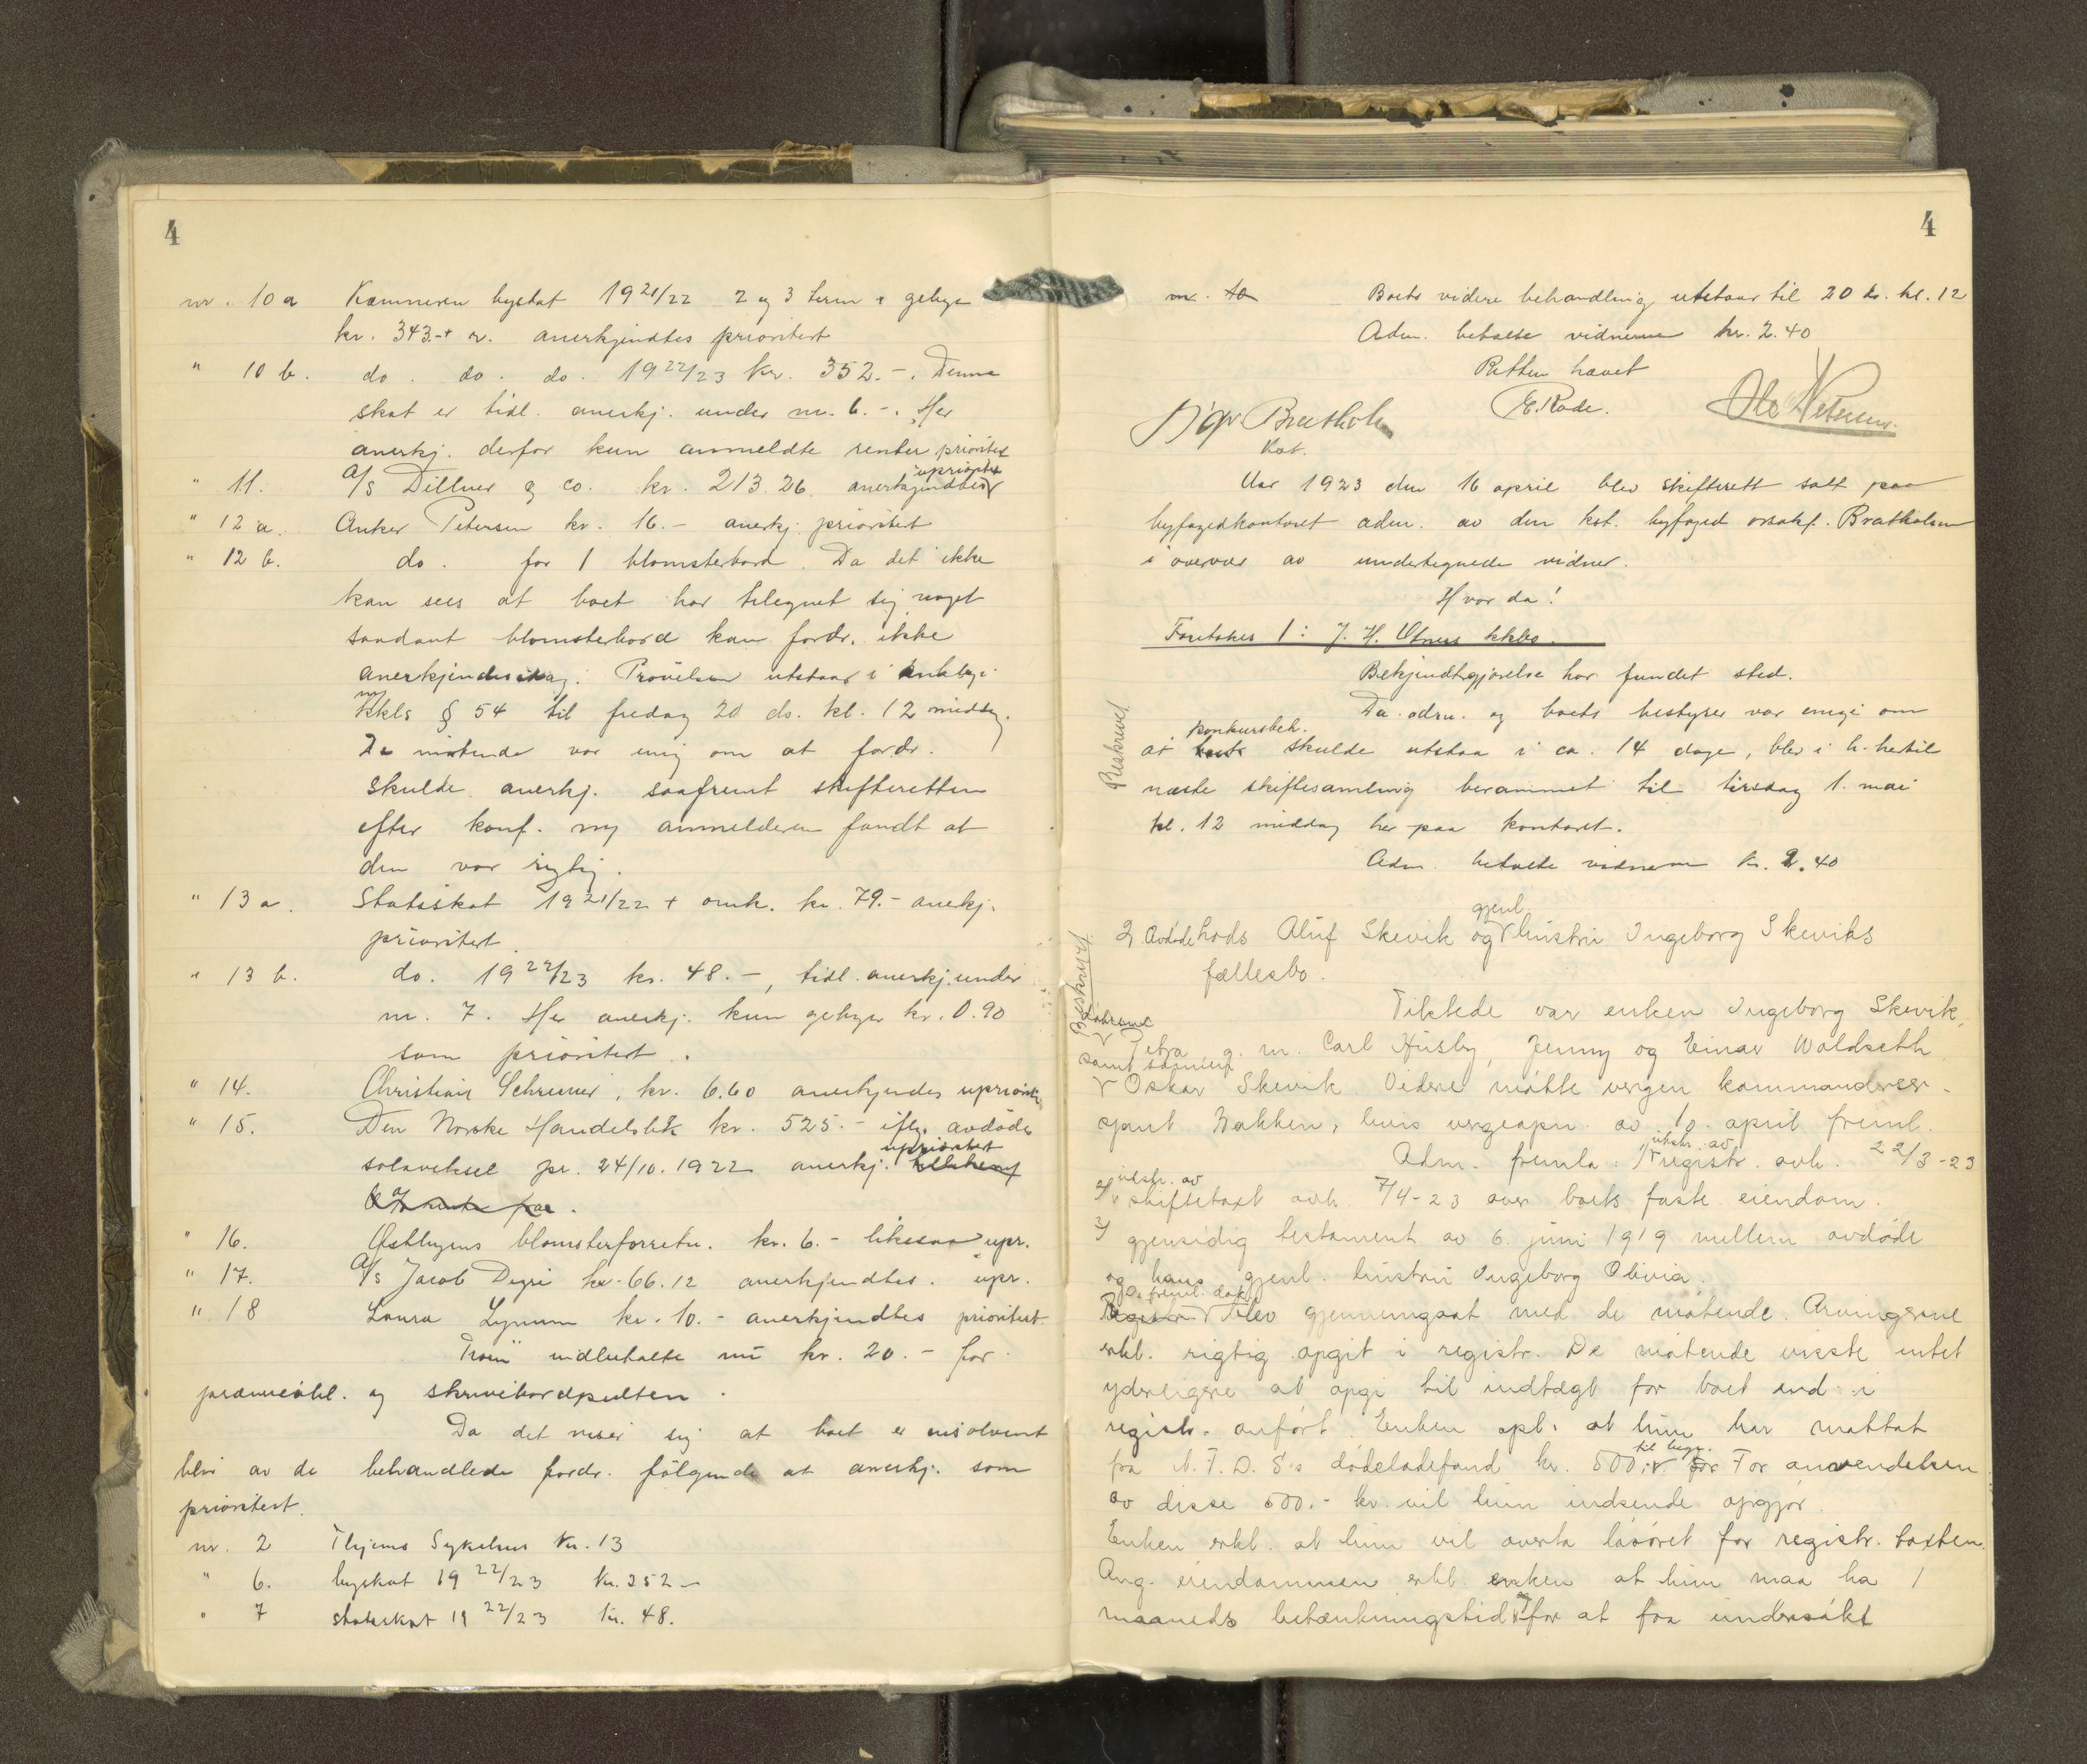 4
nr. 10a Kæmneren byskat 19 21/22 2 og 3 term + gebyr
kr. 343.- + r. anerkjendtes prioritert
" 10 b. do. do. do. 19 22/23 kr. 352.-. Denne
skat er tidl. anerkj. under nr. 6.-. Her
anerkj. derfor kun anmeldte renter prioritet
uprioritet
" 11. A/S Dillner & co. kr. 213.26 anerkjendtes
" 12 a. Anker Petersen kr. 16.- anerkj. prioritert
" 12 b. do. for 1 blomsterbord. Da det ikke
kan sees at boet har tilegnet sig noget
saadant blomsterbord kan fordr. ikke
anerkjendes idag. Prövelsen utstaar i
kkls § 54 til fredag 20 ds. kl. 12 middag.
De mötende var enig om at fordr.
skulde anerkj. saafremt skifteretten
efter konf. m/ anmelderen fandt at
den var rigtig.
" 13 a. Statsskat 19 21/22 + omk. kr. 79.- anerkj.
prioritert.
" 13 b. do. 19 22/23 kr. 48.-, tidl. anerkj. under
nr. 7. Her anerkj. kun gebyr kr. 0.90
som prioritert.
" 14. Christian Schreiner, kr. 6.60 anerkjendes uprioritert
" 15. Den Norske Handelsbk kr. 525.- iflg. avdödes
uprioritert
solaveksel pr. 24/10. 1922 anerkj.
" 16. Østbyens blomsterforretn. kr. 6.- likesaa upr.
" 17. A/S Jacob Digre kr. 66.12 anerkjendtes. upr.
" 18 Laura Lynum kr. 10.- anerkjendtes prioritert.
indbetalte nu kr. 20.- for
og skrivebordpulten.
Da det viser sig at boet er insolvent
blir av de behandlede fordr. fölgende at anerkj. som
prioritert.
nr. 2 Thjems Sykehus kr. 13
" 6. byskat 19 22/23 kr. 352.-
" 7 statsskat 19 22/23 kr. 48.
4
nr. 10 Boets videre behandling utstaar til 20 ds. kl. 12
Adm. betalte vidnerne kr. 2.40
Retten hævet
Bratholm E. Rode. Ole Petersen
Kst.
Aar 1923 den 16 april blev skifterett satt paa
byfogedkontoret adm. av den kst. byfoged orsakf. Bratholm
i overvær av undertegnede vidner.
Hvorda!
Foretokes 1: J. H. Otness kkbo.
Bekjendtgjörelse har fundet sted.
Da adm. og boets bestyrer var enige om
konkursbeh.
at skulde utstaa i ca. 14 dage, blev i h. hertil
Beskrevet
næste skiftesamling berammet til tirsdag 1. mai
kl. 12 middag her paa kontoret.
Adm. betalte vidnerne kr. 2.40
gjenl.
2 Avdöde Aluf Skevik og hustru Ingeborg Skeviks
fællesbo.
Beskrevet
Tilstede var enken Ingeborg Skevik,
Petra g. m. Carl Husby, Jenny og Einar Woldseth
samt sönnen
Oskar Skevik. Videre mötte vergen kommandérser-
sjant Bakken, hvis vergeopn. av 10. april freml.
utskr. av
Adm. fremla: 1/ registr. avh. 22/3-23
utskr. av
2/ skiftetaxt avh. 7/4-23 over boets faste eiendom.
3/ gjensidig testament av 6. juni 1919 mellem avdöde
og hans gjenl. hustru Ingeborg Olivia.
De freml. dok.
Registr. blev gjennemgaat med de mötende. Arvingerne
erkl. rigtig opgit i registr. De mötende visste intet
yderligere at opgi til indtægt for boet end i
registr. anfört. Enken opl. at hun har mottat
til begr.
fra N. F. D. S's dödsladefond kr. 500,- For anvendelsen
av disse 500.- kr. vil hun indsende opgjör.
Enken erkl. at hun vil overta lösöret for registr. taxten.
Ang. eiendommen erkl. enken at hun maa ha 1
maaneds betænkningstid for at faa undersökt